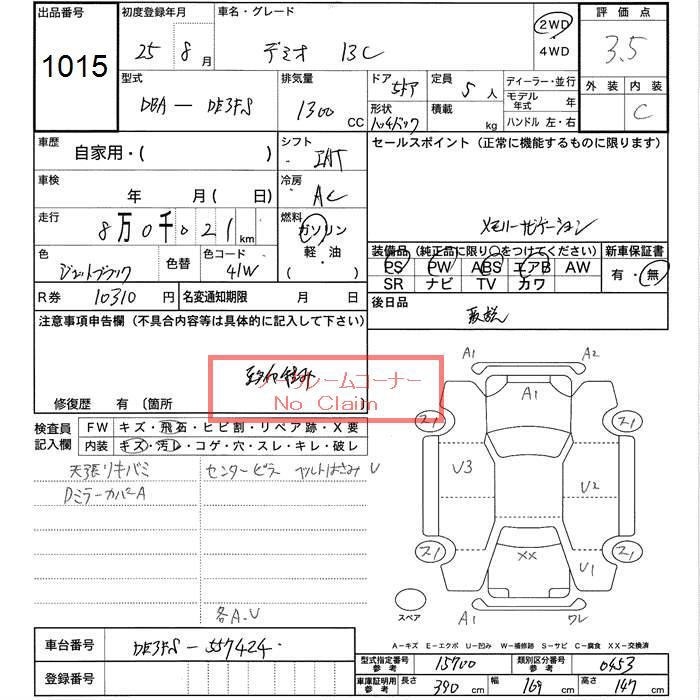 出品番号 1015
初度登録年月 25 8月
車名・グレード デミオ 13C
2WD
4WD
評価点 3.5
外装 内装 C
型式 DBA-DE3FS
排気量 1300 CC
ドア 5ドア
形状 ハッチバック
定員 5人
積載 kg
ディーラー・並行
モデル年式 年
ハンドル 左・右
車歴 自家用・( )
シフト IAT
セールスポイント (正常に機能するものに限ります)
メモリーナビゲーション
車検 年 月(日)
冷房 AC
走行 8万0千021km
燃料 ガソリン
軽・油
( )
色 ジェットブラック
色替
色コード 41W
装備品 (純正品に限り○をつけてください)
PS PW ABS エアB AW
SR ナビ TV カワ
新車保証書
有・無
R券 10310円
名変通知期限 月 日
後日品 取説
注意事項申告欄 (不具合内容等は具体的に記入して下さい)
ノークレームコーナー
No Claim
修復歴 有 (箇所 )
検査員記入欄
FW キズ・飛石・ヒビ割・リペア跡・X要
内装 キズ・汚レ・コゲ・穴・スレ・キレ・破レ
天張リキバミ
センターピラー ベルトはさみU
DミラーカバーA
各A.U
A1 A2
A1
ス1 ス1
U3 U2
XX
ス1 ス1
U1
スペア
A1 ワレ
A-キズ E-エクボ U-凹み W-補修跡 S-サビ C-腐食 XX-交換済
車台番号 DE3FS-557424
登録番号
型式指定番号参考 15700
類別区分番号参考 0453
車庫証明用参考 長さ 390cm 幅 169cm 高さ 147cm